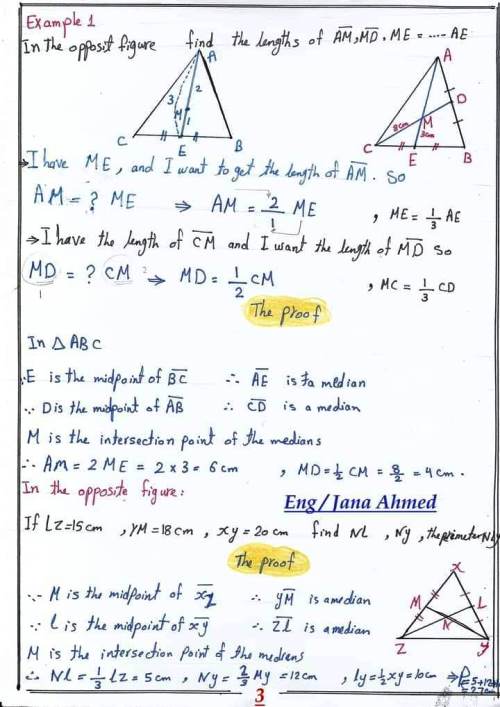 Example 1
In the opposit figure find the lengths of AM, MD, ME = .... AE
A
3 2
M 1
C E B
A
D
8cm M
3cm
C E B
→ I have ME, and I want to get the length of AM. So
AM = ? ME ⇒ AM = 2/1 ME , ME = 1/3 AE
→ I have the length of CM and I want the length of MD so
MD = ? CM ⇒ MD = 1/2 CM , MC = 1/3 CD
1 2
The proof
In △ ABC
∵ E is the midpoint of BC ∴ AE is a median
∵ D is the midpoint of AB ∴ CD is a median
M is the intersection point of the medians
∴ AM = 2 ME = 2 x 3 = 6 cm , MD = 1/2 CM = 8/2 = 4 cm.
In the opposite figure:
Eng/ Jana Ahmed
If LZ=15cm , YM=18cm , xy=20cm find NL , Ny , the
The proof
X
M L
N
Z y
∵ M is the midpoint of ∴ yM is a median
∵ L is the midpoint of xy ∴ ZL is a median
M is the intersection point of the medians
∴ NL = 1/3 LZ = 5cm , Ny = 2/3 My = 12cm , Ly = 1/2 xy = 10cm ⇒ P = 5+12+10
= 27cm
3